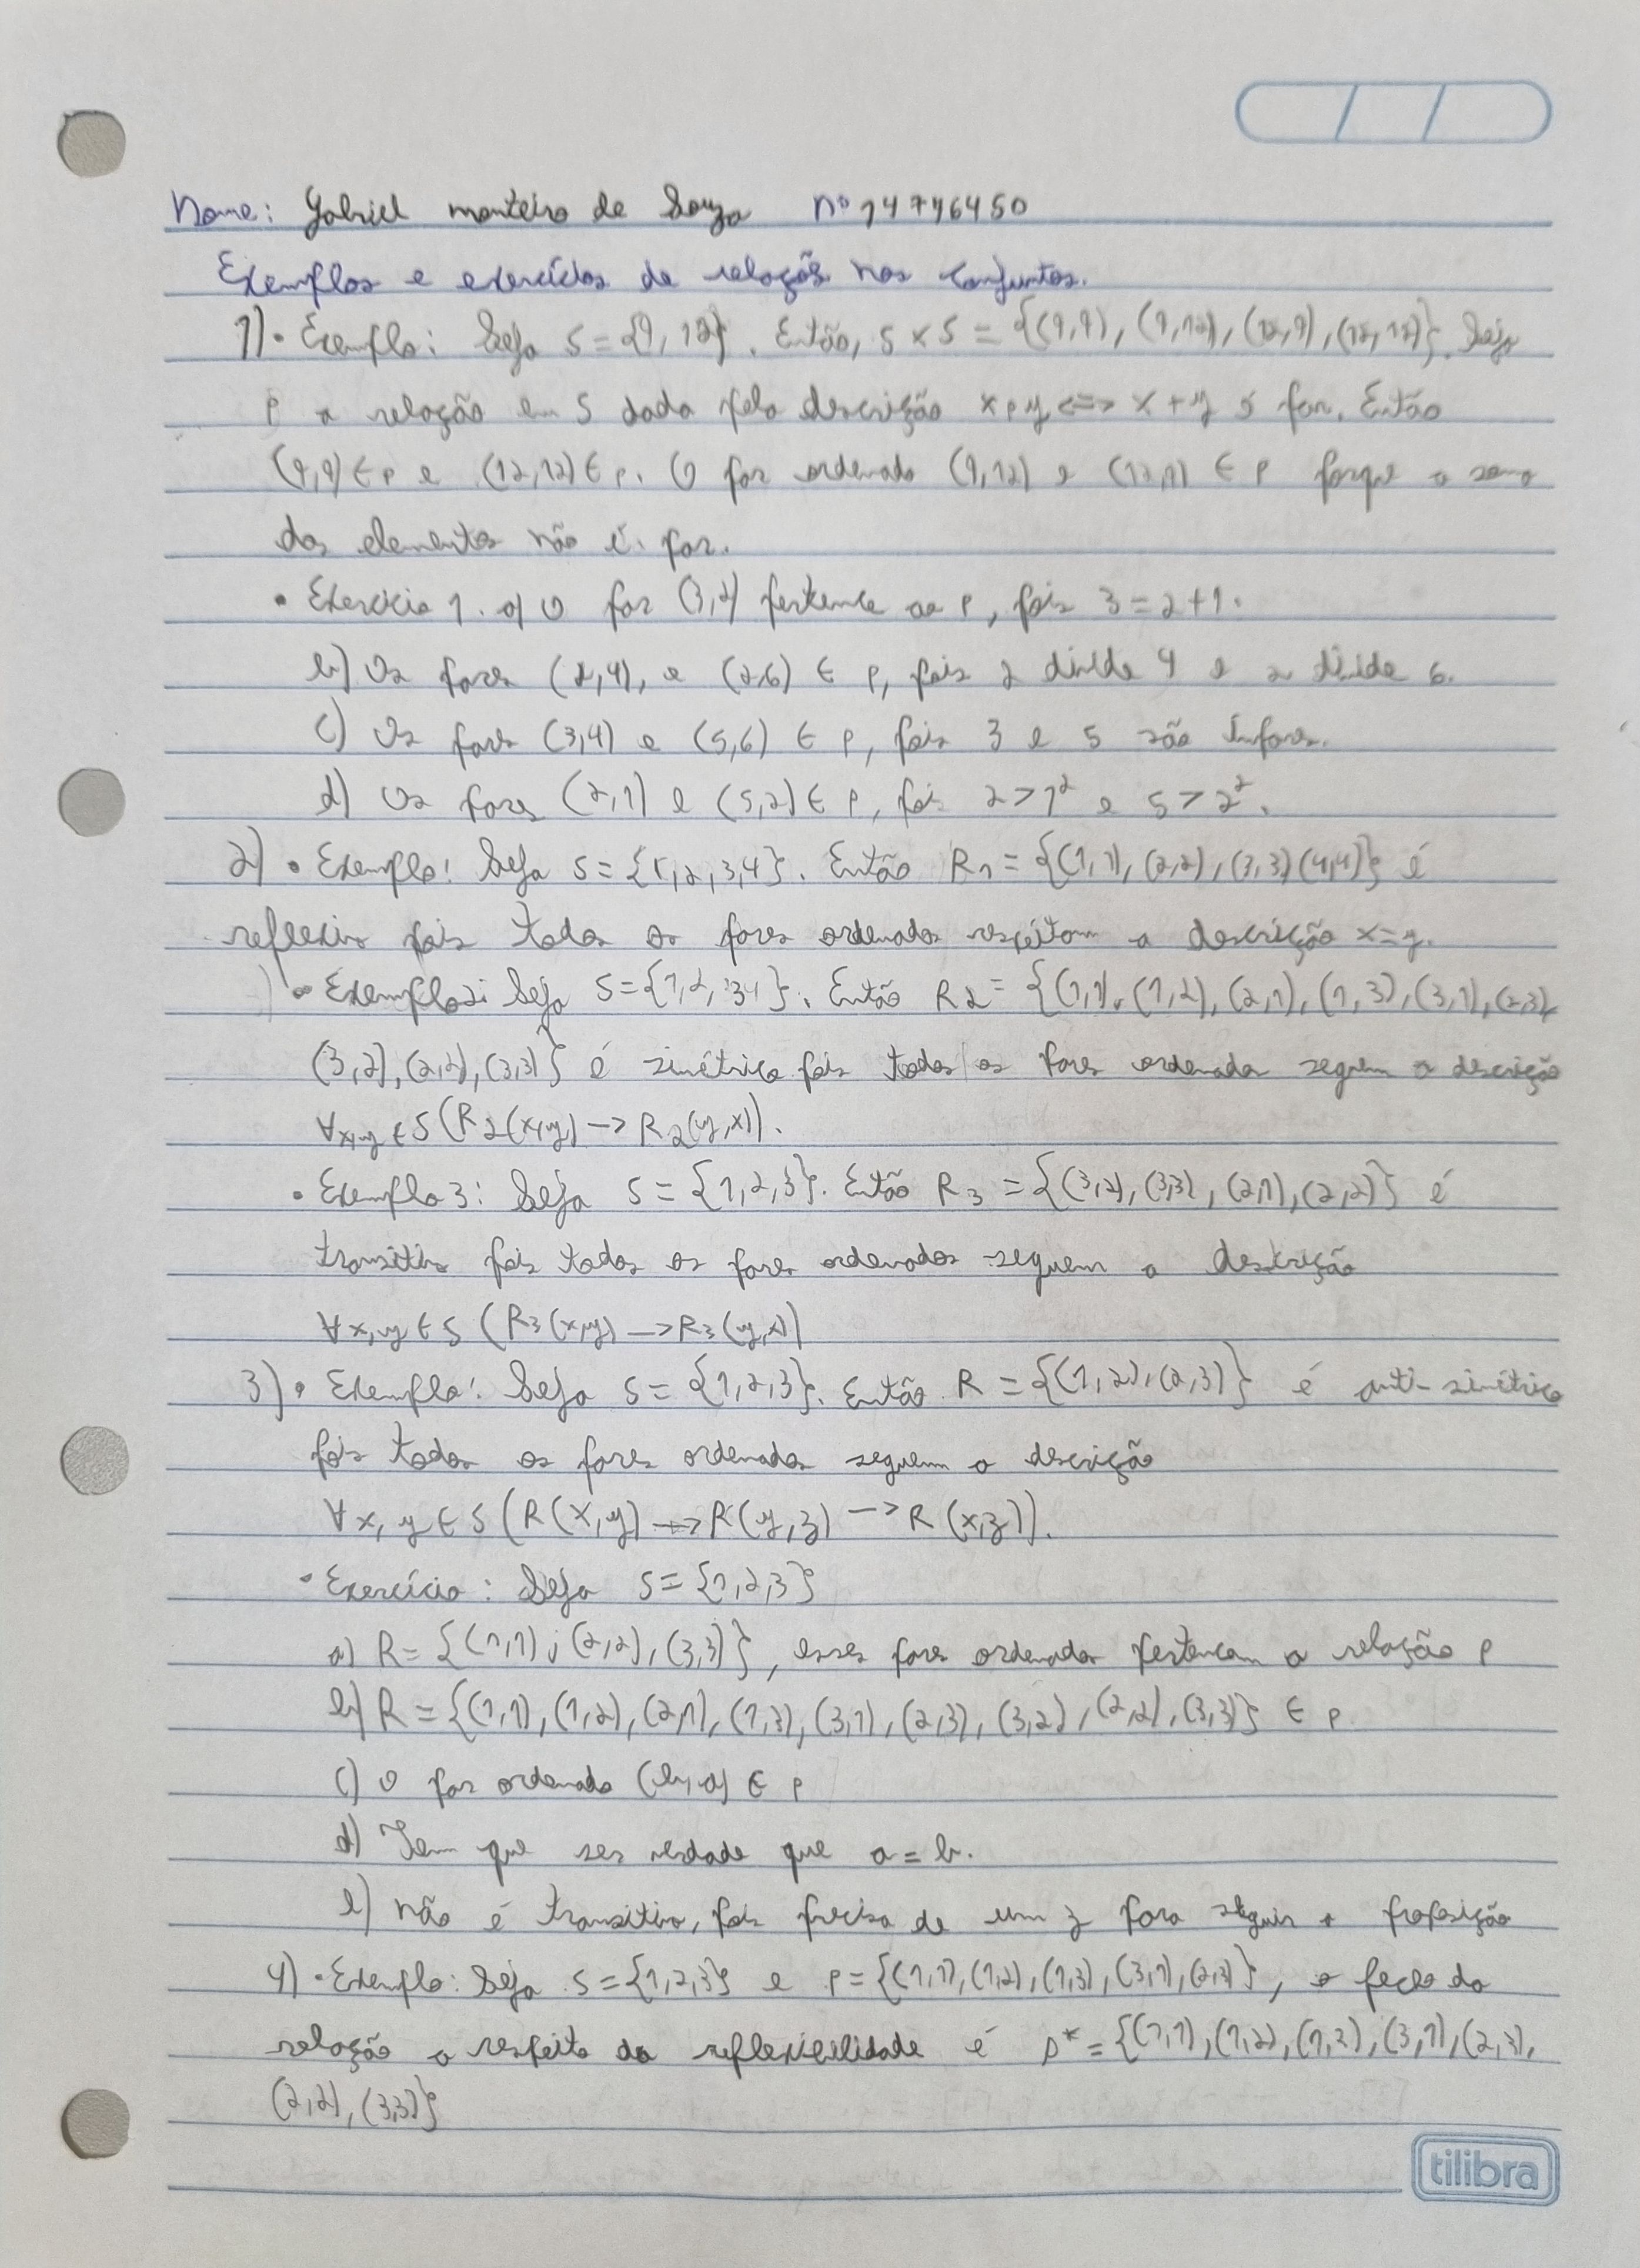 Nome: Gabriel monteiro de Souza nº 14746450
Exemplos e exercícios de relações nos conjuntos.
1) • Exemplo: Seja S = {9, 12}. Então, S x S = {(9,9), (9,12), (12,9), (12,12)}. Seja
ρ a relação em S dada pela descrição x ρ y <=> x + y é par. Então
(9,9) ∈ ρ e (12,12) ∈ ρ. O par ordenado (9,12) e (12,9) ∈ ρ porque a soma
dos elementos não é par.
• Exercício 1. a) O par (3,2) pertence ao ρ, pois 3 = 2+1.
b) Os pares (2,4), e (2,6) ∈ ρ, pois 2 divide 4 e 2 divide 6.
c) Os pares (3,4) e (5,6) ∈ ρ, pois 3 e 5 são ímpares.
d) Os pares (2,1) e (5,2) ∈ ρ, pois 2 > 1² e 5 > 2².
2) • Exemplo: Seja S = {1,2,3,4}. Então R1 = {(1,1), (2,2), (3,3) (4,4)} é
reflexivo pois todos os pares ordenados respeitam a descrição x=y.
• Exemplo2: Seja S={1,2,34}. Então R2 = {(1,1), (1,2), (2,1), (1,3), (3,1), (2,3),
(3,2), (2,2), (3,3)} é simétrico pois todos os pares ordenados seguem a descrição
∀x,y ∈ S (R2(x,y) -> R2(y,x)).
• Exemplo 3: Seja S = {1,2,3}. Então R3 = {(3,2), (3,3), (2,1), (2,2)} é
transitivo pois todos os pares ordenados seguem a descrição
∀x,y ∈ S (R3(x,y) -> R3(y,x))
3) • Exemplo: Seja S = {1,2,3}. Então R = {(1,2), (2,3)} é anti-simétrico
pois todos os pares ordenados seguem a descrição
∀x, y ∈ S (R(x,y) -> R(y,z) -> R(x,z)).
• Exercício: Seja S = {1,2,3}
a) R = {(1,1), (2,2), (3,3)}, esses pares ordenados pertencem a relação ρ
b) R = {(1,1), (1,2), (2,1), (1,3), (3,1), (2,3), (3,2), (2,2), (3,3)} ∈ ρ
c) O par ordenado (b,a) ∈ ρ
d) Tem que ser verdade que a = b.
e) não é transitivo, pois precisa de um z para seguir a proposição
4) • Exemplo: Seja S = {1,2,3} e ρ = {(1,1), (1,2), (1,3), (3,1), (2,3)}, o fecho da
relação a respeito da reflexibilidade é ρ* = {(1,1), (1,2), (1,3), (3,1), (2,3),
(2,2), (3,3)}
tilibra